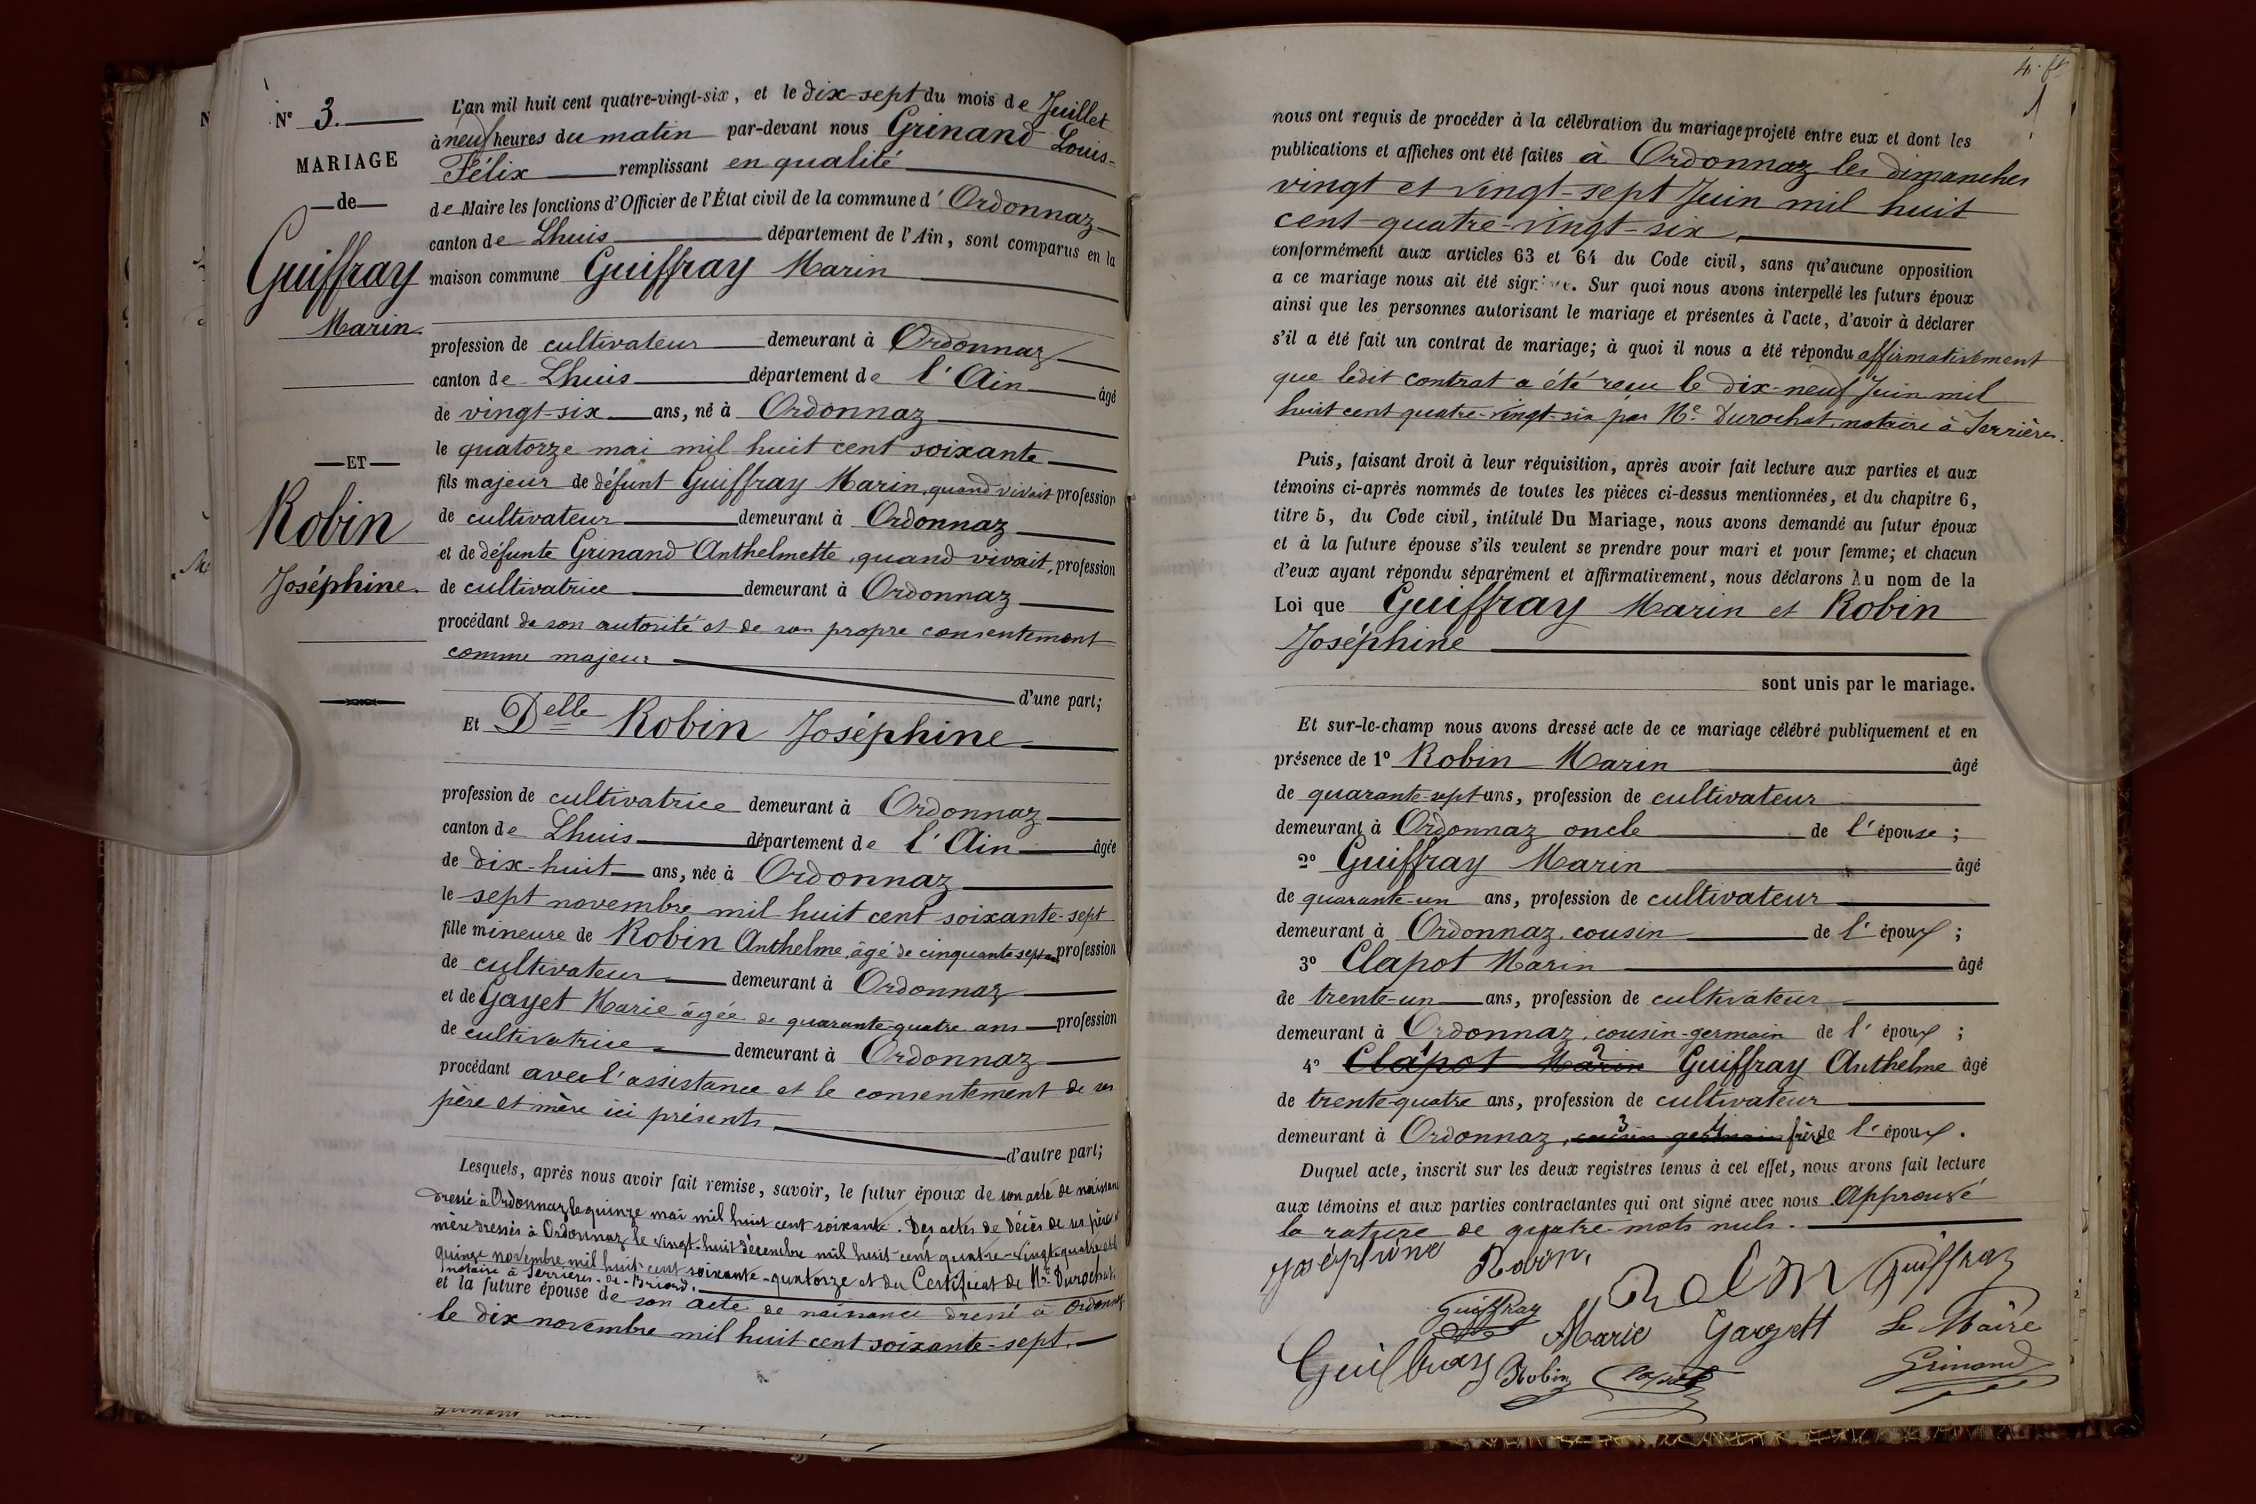 N° 3.
MARIAGE
de
Guiffray
Marin.
ET
Robin
Joséphine.
L'an mil huit cent quatre-vingt-six, et le dix-sept du mois de Juillet
à neuf heures du matin par-devant nous Grinand Louis-
Félix remplissant en qualité
de Maire les fonctions d'Officier de l'État civil de la commune d'Ordonnaz
canton de Lhuis département de l'Ain, sont comparus en la
maison commune Guiffray Marin
profession de cultivateur demeurant à Ordonnaz
canton de Lhuis département de l'Ain âgé
de vingt-six ans, né à Ordonnaz
le quatorze mai mil huit cent soixante
fils majeur de défunt Guiffray Marin, quand vivait profession
de cultivateur demeurant à Ordonnaz
et de défunte Grinand Anthelmette, quand vivait, profession
de cultivatrice demeurant à Ordonnaz
procédant de son autorité et de son propre consentement
comme majeur
d'une part;
Et Delle Robin Joséphine
profession de cultivatrice demeurant à Ordonnaz
canton de Lhuis département de l'Ain âgée
de dix-huit ans, née à Ordonnaz
le sept novembre mil huit cent soixante-sept
fille mineure de Robin Anthelme, âgé de cinquante-sept profession
de cultivateur demeurant à Ordonnaz
et de Gayet Marie âgée de quarante-quatre ans profession
de cultivatrice demeurant à Ordonnaz
procédant avec l'assistance et le consentement de ses
père et mère ici présents
d'autre part;
Lesquels, après nous avoir fait remise, savoir, le futur époux de son acte de naissance
dressé à Ordonnaz le quinze mai mil huit cent soixante. Des actes de décès de ses père et
mère dressés à Ordonnaz le vingt-huit décembre mil huit-cent quatre-vingt-quatre et le
quinze novembre mil huit-cent soixante-quatorze et du Certificat de Me Durochat,
notaire à Serrières-de-Briord.
et la future épouse de son acte de naissance dressé à Ordonnaz
le dix novembre mil huit cent soixante-sept.
nous ont requis de procéder à la célébration du mariage projeté entre eux et dont les
publications et affiches ont été faites à Ordonnaz les dimanches
vingt et vingt-sept Juin mil huit
cent-quatre-vingt-six,
conformément aux articles 63 et 64 du Code civil, sans qu'aucune opposition
a ce mariage nous ait été signifiée. Sur quoi nous avons interpellé les futurs époux
ainsi que les personnes autorisant le mariage et présentes à l'acte, d'avoir à déclarer
s'il a été fait un contrat de mariage; à quoi il nous a été répondu affirmativement
que ledit contrat a été reçu le dix-neuf Juin mil
huit cent quatre-vingt-six par Me Durochat, notaire à Serrières.
Puis, faisant droit à leur réquisition, après avoir fait lecture aux parties et aux
témoins ci-après nommés de toutes les pièces ci-dessus mentionnées, et du chapitre 6,
titre 5, du Code civil, intitulé Du Mariage, nous avons demandé au futur époux
et à la future épouse s'ils veulent se prendre pour mari et pour femme; et chacun
d'eux ayant répondu séparément et affirmativement, nous déclarons Au nom de la
Loi que Guiffray Marin et Robin
Joséphine
sont unis par le mariage.
Et sur-le-champ nous avons dressé acte de ce mariage célébré publiquement et en
présence de 1° Robin Marin âgé
de quarante-sept ans, profession de cultivateur
demeurant à Ordonnaz oncle de l'épouse;
2° Guiffray Marin âgé
de quarante-un ans, profession de cultivateur
demeurant à Ordonnaz, cousin de l'époux;
3° Clapot Marin âgé
de trente-un ans, profession de cultivateur
demeurant à Ordonnaz, cousin-germain de l'époux;
4° Clapot Marin Guiffray Anthelme âgé
de trente-quatre ans, profession de cultivateur
demeurant à Ordonnaz, cousin germain frère de l'époux.
Duquel acte, inscrit sur les deux registres tenus à cet effet, nous avons fait lecture
aux témoins et aux parties contractantes qui ont signé avec nous. Approuvé
la rature de quatre mots nuls.
Joséphine Robin, Robin Guiffray
Guiffray Marie Gayett Le Maire
Guiffray Robin Clapot Grinand